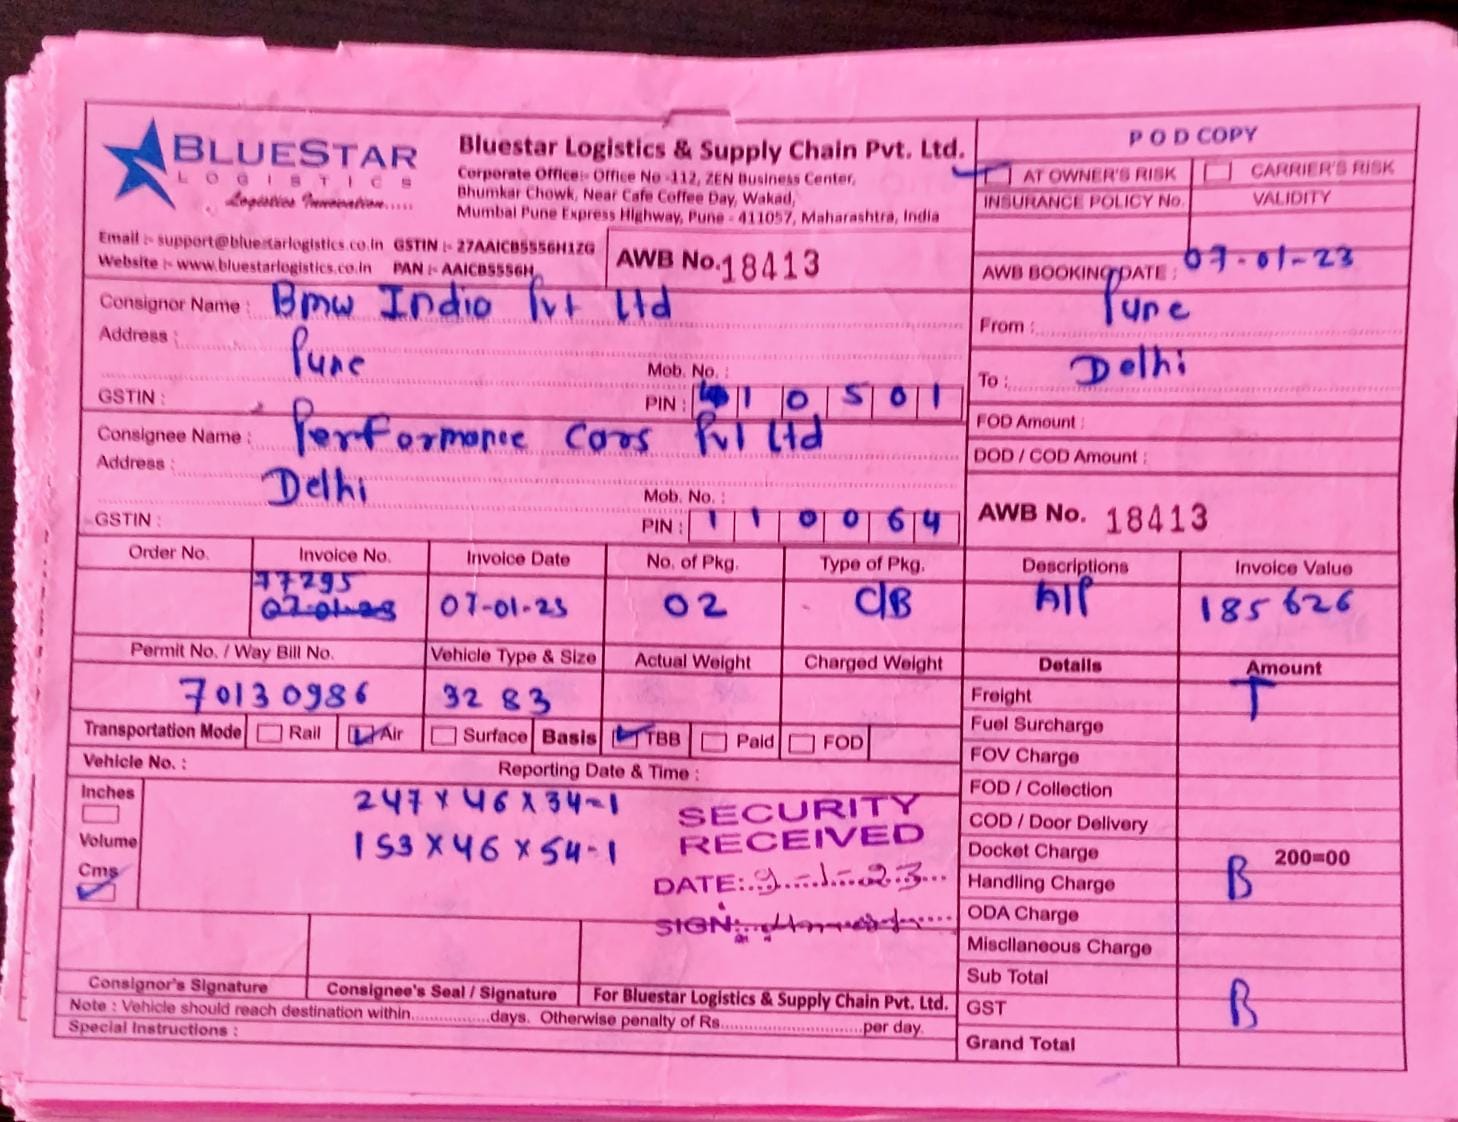 BLUESTAR
LOGISTICS
Logistics Innovation.....
Bluestar Logistics & Supply Chain Pvt. Ltd.
Corporate Office:- Office No -112, ZEN Business Center,
Bhumkar Chowk, Near Cafe Coffee Day, Wakad,
Mumbai Pune Express Highway, Pune - 411057, Maharashtra, India
Email :- support@bluestarlogistics.co.in GSTIN :- 27AAICB5556H1ZG
Website :- www.bluestarlogistics.co.in PAN :- AAICB5556H
AWB No. 18413
POD COPY
AT OWNER'S RISK CARRIER'S RISK
INSURANCE POLICY No. VALIDITY
AWB BOOKING DATE : 07-01-23
From : Pune
To : Delhi
FOD Amount :
DOD / COD Amount :
AWB No. 18413
Consignor Name : Bmw Indio Pvt Ltd
Address :
Pune
Mob. No. :
GSTIN : PIN : 410501
Consignee Name : Performance Cars Pvt Ltd
Address :
Delhi
Mob. No. :
GSTIN : PIN : 110064
Order No. Invoice No. Invoice Date No. of Pkg. Type of Pkg. Descriptions Invoice Value
77295
07-01-23 07-01-23 02 C/B A/P 185626
Permit No. / Way Bill No. Vehicle Type & Size Actual Weight Charged Weight Details Amount
70130986 3283
Freight T
Transportation Mode Rail Air Surface Basis TBB Paid FOD
Fuel Surcharge
Vehicle No. : Reporting Date & Time :
FOV Charge
Inches 247 x 46 x 34-1
FOD / Collection
Volume 153 x 46 x 54-1
COD / Door Delivery
Cms
SECURITY
RECEIVED
DATE: 9-1-23
SIGN:
Docket Charge 200=00
Handling Charge B
ODA Charge
Miscllaneous Charge
Sub Total
GST B
Grand Total
Consignor's Signature Consignee's Seal / Signature For Bluestar Logistics & Supply Chain Pvt. Ltd.
Note : Vehicle should reach destination within................days. Otherwise penalty of Rs............................per day.
Special Instructions :